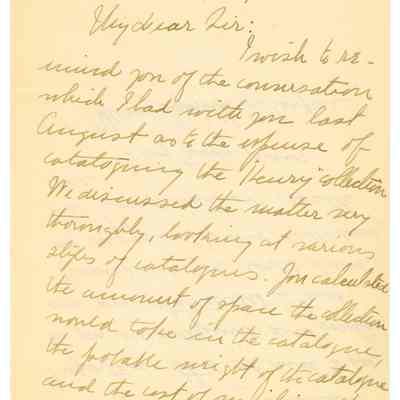 My dear Sir:
I wish to re-
mind you of the conversation
which I had with you last
August as to the expense of
cataloguing the "Henry" collection
We discussed the matter very
thoroughly, looking at various
styles of catalogues. You calculated
the amount of space the collection
would take in the catalogue,
the probable weight of the catalogue
and the cost of mailing